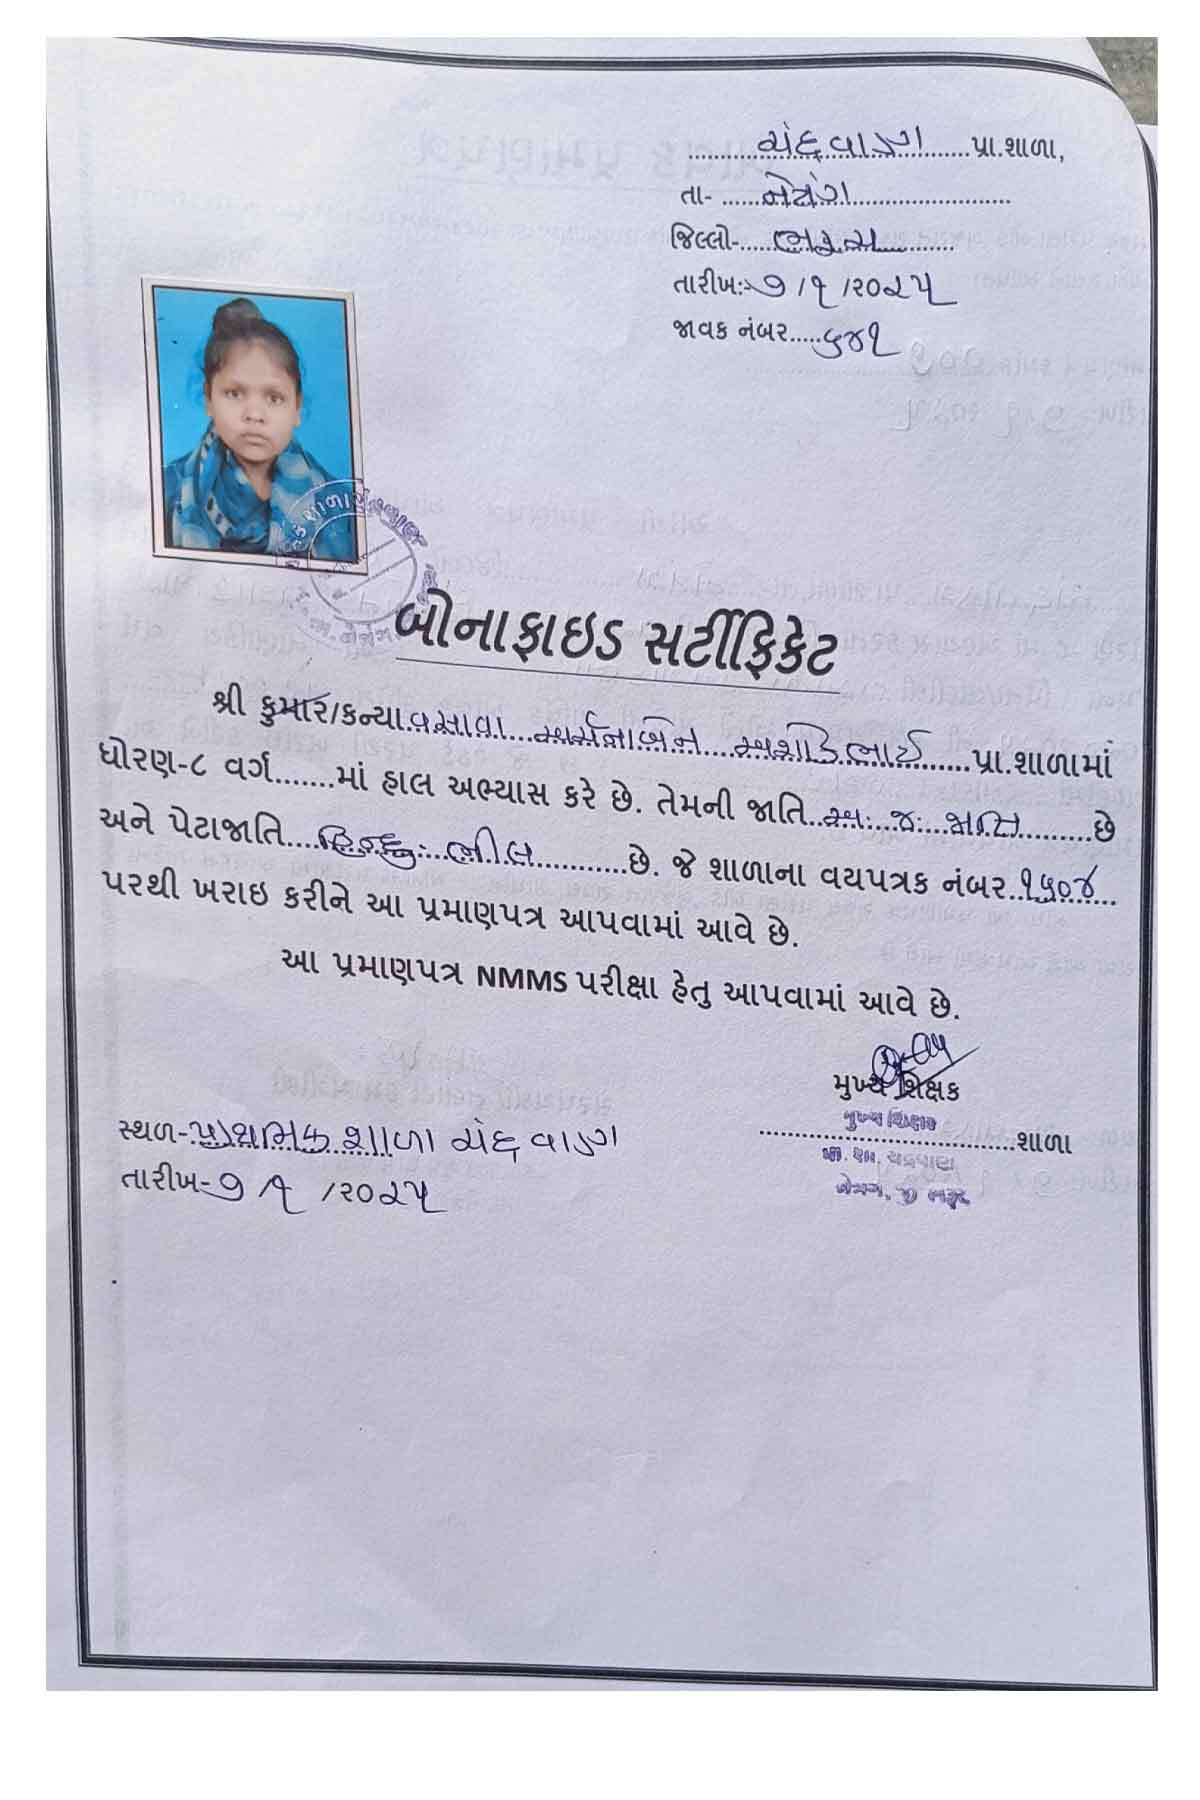 ચંદ્રવાણ પ્રા.શાળા,
તા- નેત્રંગ
જિલ્લો- ભરૂચ
તારીખ:- ૭/૧/૨૦૨૫
જાવક નંબર.....૬૪૧
બોનાફાઇડ સર્ટીફિકેટ
શ્રી કુમાર/કન્યા વસાવા અર્ચનાબેન અશોકભાઈ પ્રા.શાળામાં
ધોરણ-૮ વર્ગ.......માં હાલ અભ્યાસ કરે છે. તેમની જાતિ..અ. જ. જાતિ..........છે
અને પેટાજાતિ....હિન્દુ ભીલ...........છે. જે શાળાના વયપત્રક નંબર..૧૫૦૪....
પરથી ખરાઇ કરીને આ પ્રમાણપત્ર આપવામાં આવે છે.
આ પ્રમાણપત્ર NMMS પરીક્ષા હેતુ આપવામાં આવે છે.
મુખ્ય શિક્ષક
મુખ્ય શિક્ષક
સ્થળ-પ્રાથમિક શાળા ચંદ્રવાણ
શાળા
પ્રા. શા. ચંદ્રવાણ
તારીખ-૭/૧ /૨૦૨૫
નેત્રંગ, જી ભરૂચ